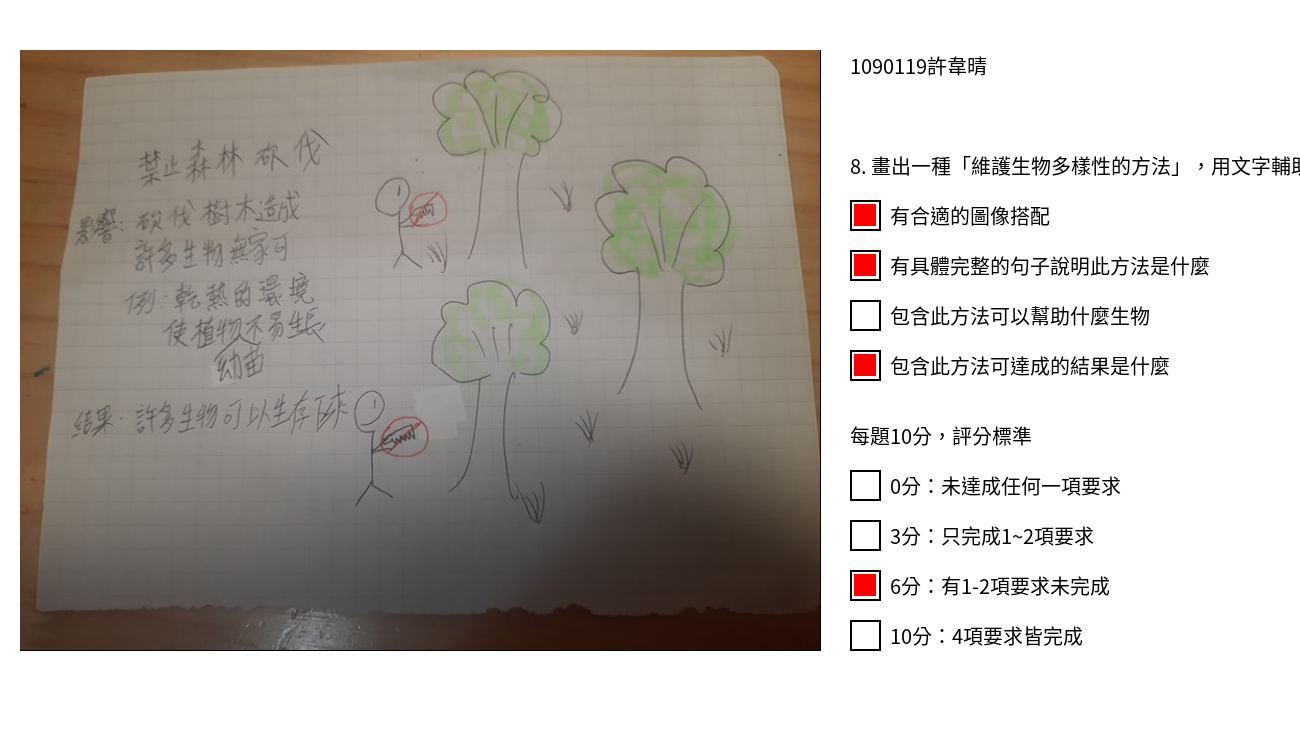 禁止森林砍伐
影響：砍伐樹木造成
許多生物無家可
例：乾熱的環境
使植物不易生長
幼苗
結果：許多生物可以生存下來
1090119許韋晴
8. 畫出一種「維護生物多樣性的方法」，用文字輔助
有合適的圖像搭配
有具體完整的句子說明此方法是什麼
包含此方法可以幫助什麼生物
包含此方法可達成的結果是什麼
每題10分，評分標準
0分：未達成任何一項要求
3分：只完成1~2項要求
6分：有1-2項要求未完成
10分：4項要求皆完成